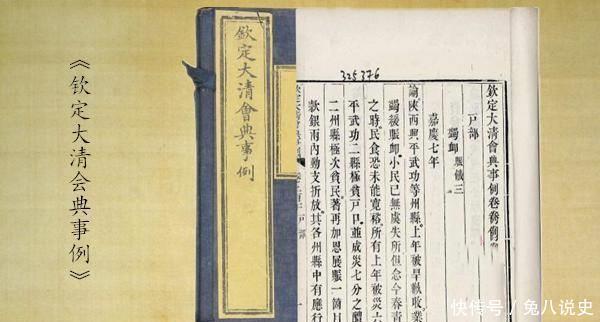 《钦定大清会典事例》
欽定大清會典事例
325376
欽定大清會典事例卷
戶部
蠲卹 賑饑三
嘉慶七年
諭陝西興平武功等州縣上年被旱歉收業
蠲緩賑卹小民已無虞失所但念今春青
之時民食恐未能寬裕所有上年被災六
平武功二縣極貧戶口並成災七分之醴
二州縣極次貧民著再加恩展賑一箇月
款銀雨內動支折放其各州縣中有應行
快传号/兔八说史